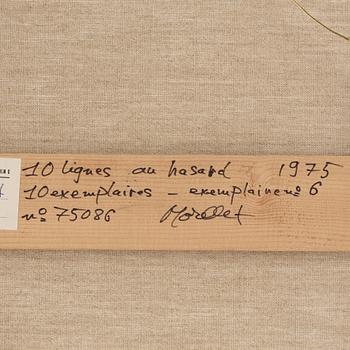 10 lignes au hasard 1975
10 exemplaires - exemplaire nº 6
nº 75086 Morellet